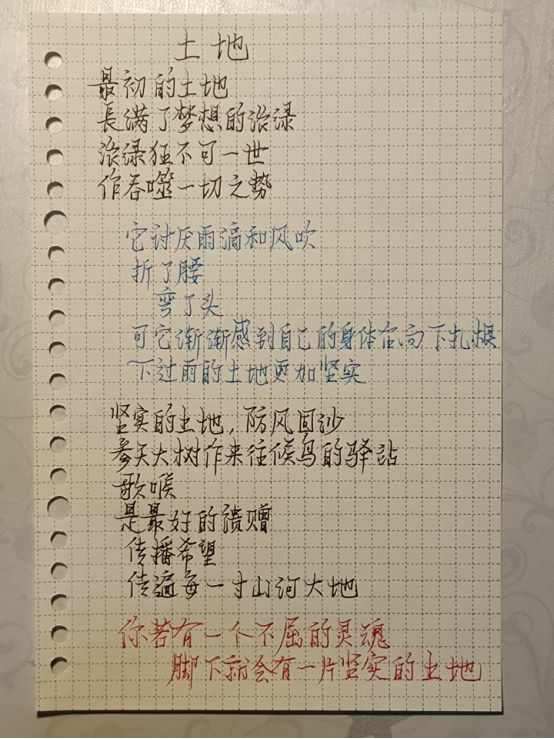 土地
最初的土地
長满了梦想的浓绿
浓绿狂不可一世
作吞噬一切之势
它讨厌雨滴和风吹
折了腰
弯了头
可它渐渐感到自己的身体在向下扎根
下过雨的土地更加坚实
坚实的土地，防风固沙
参天大树作来往候鸟的驿站
歌喉
是最好的馈赠
传播希望
传遍每一寸山河大地
你若有一个不屈的灵魂
脚下就会有一片坚实的土地